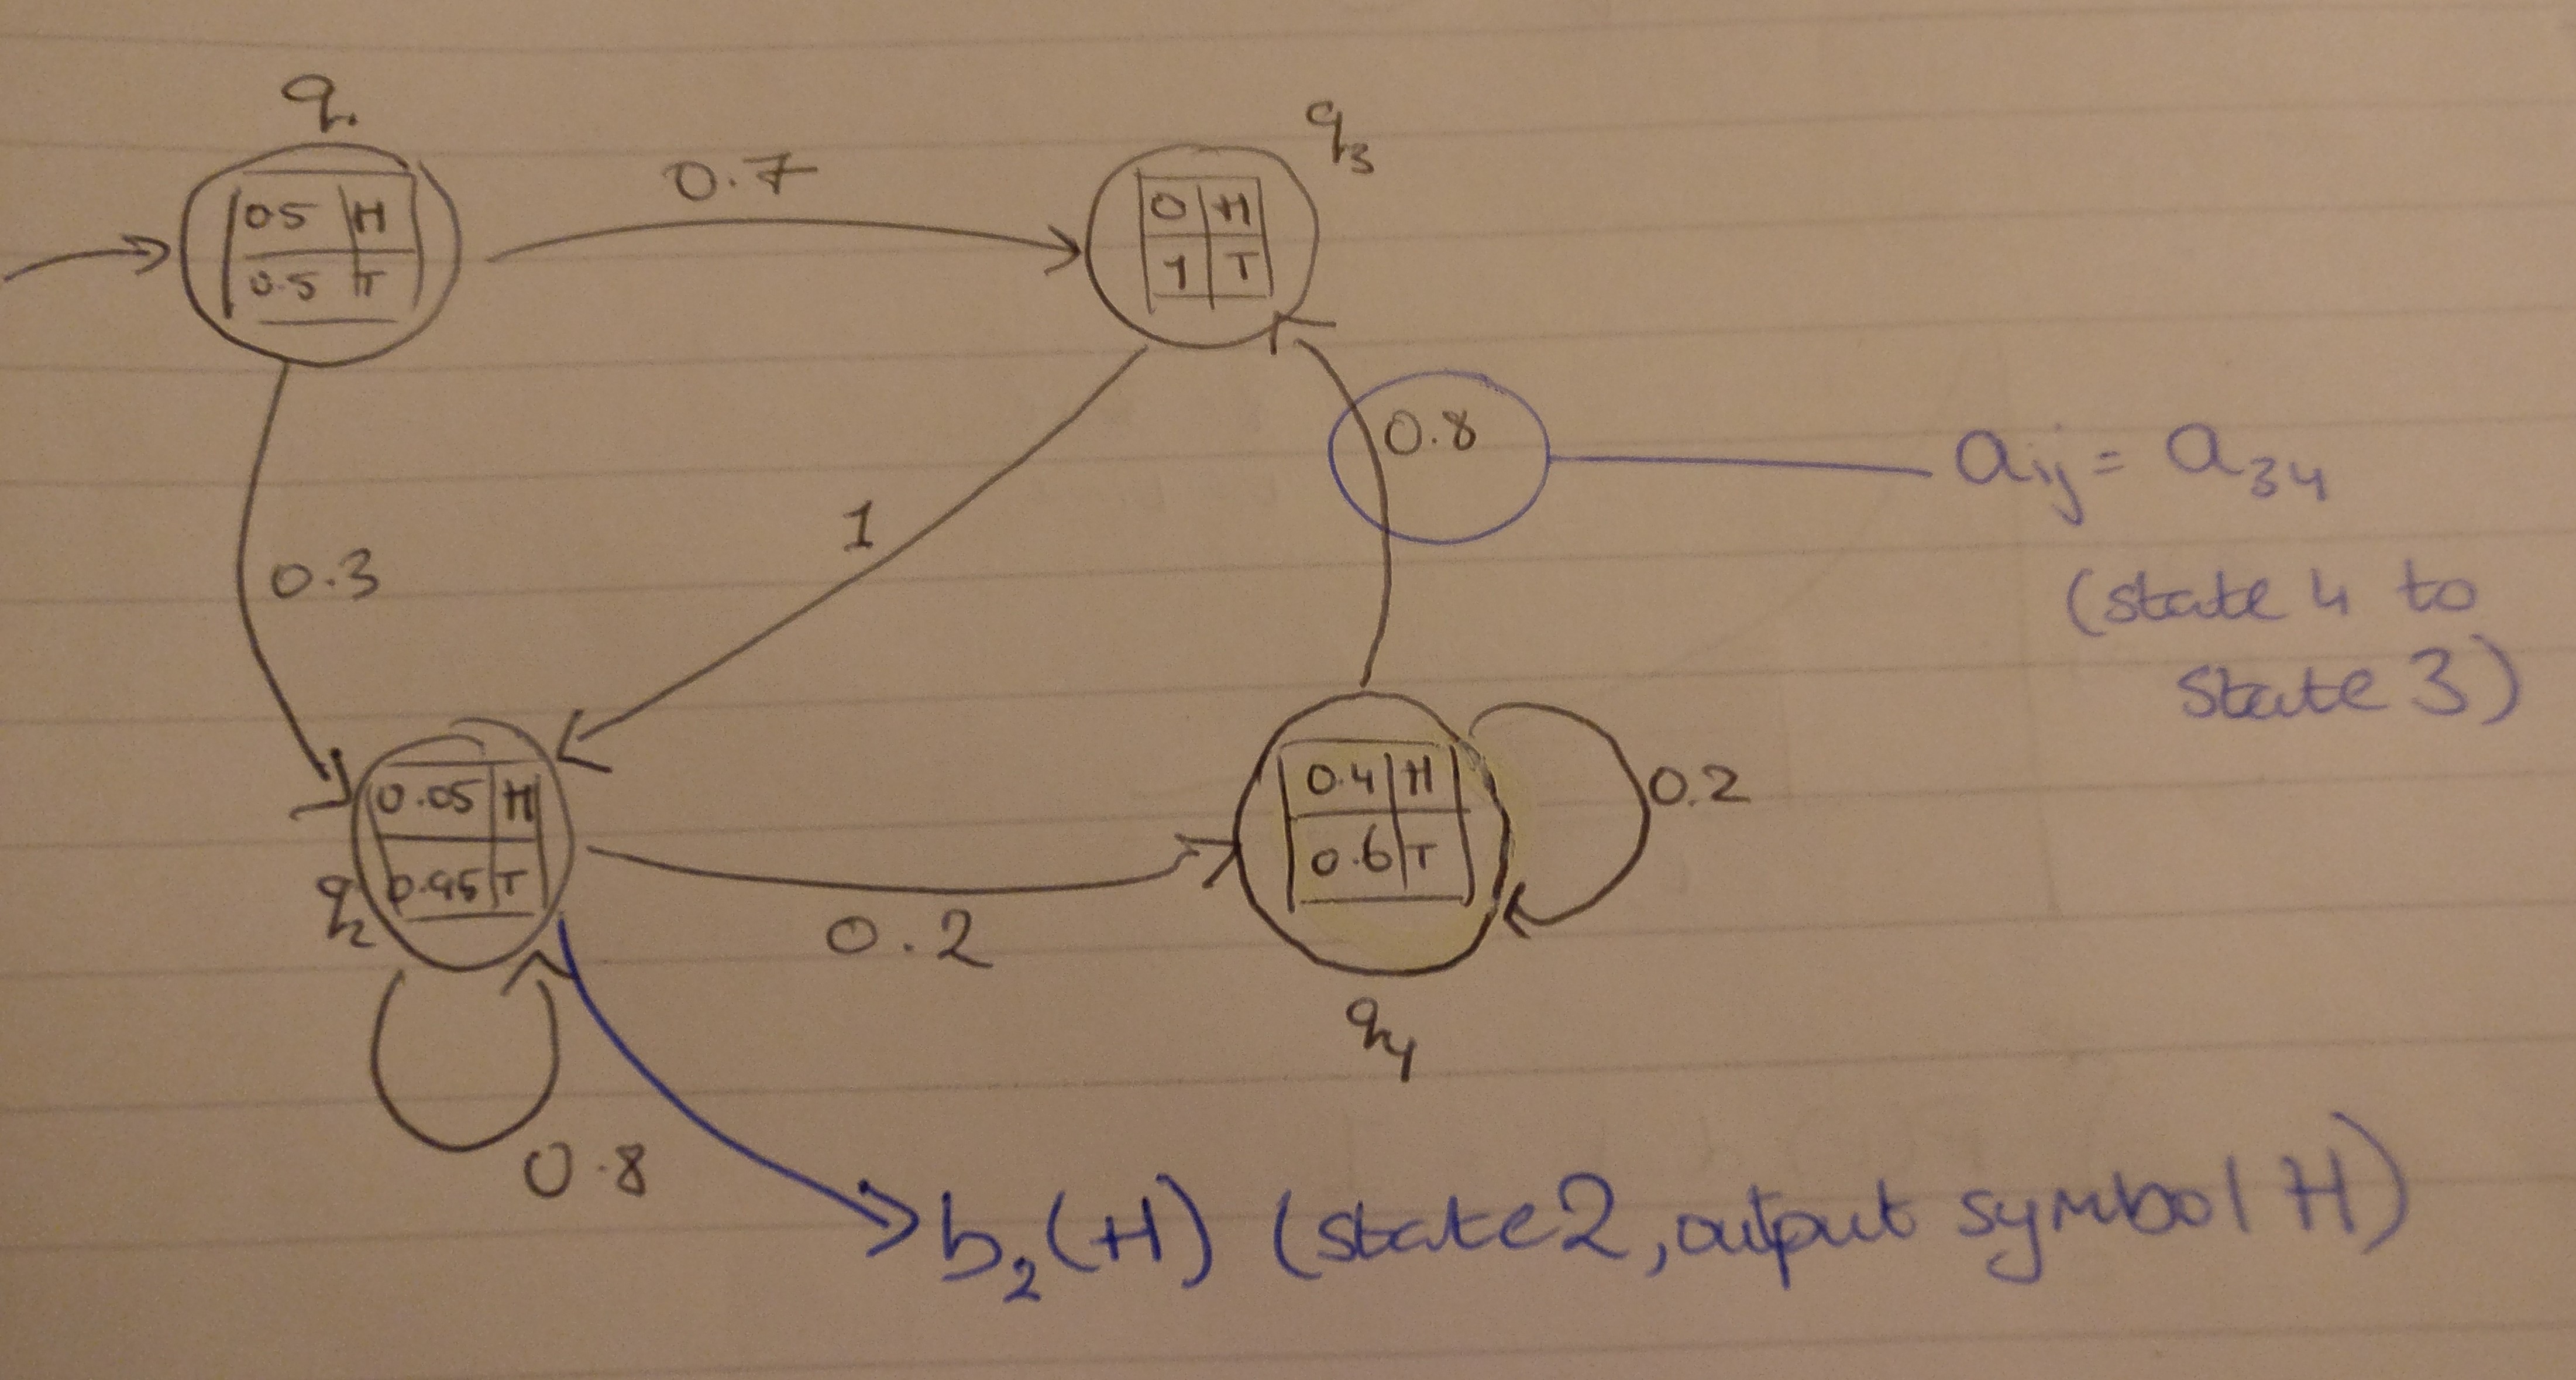 q1
0.5 H
0.5 T
0.7
q3
0 H
1 T
0.3
1
0.8
aij = a34
(state 4 to
state 3)
q2
0.05 H
0.95 T
0.2
0.4 H
0.6 T
0.2
q4
0.8
b2(H) (state 2, output symbol H)